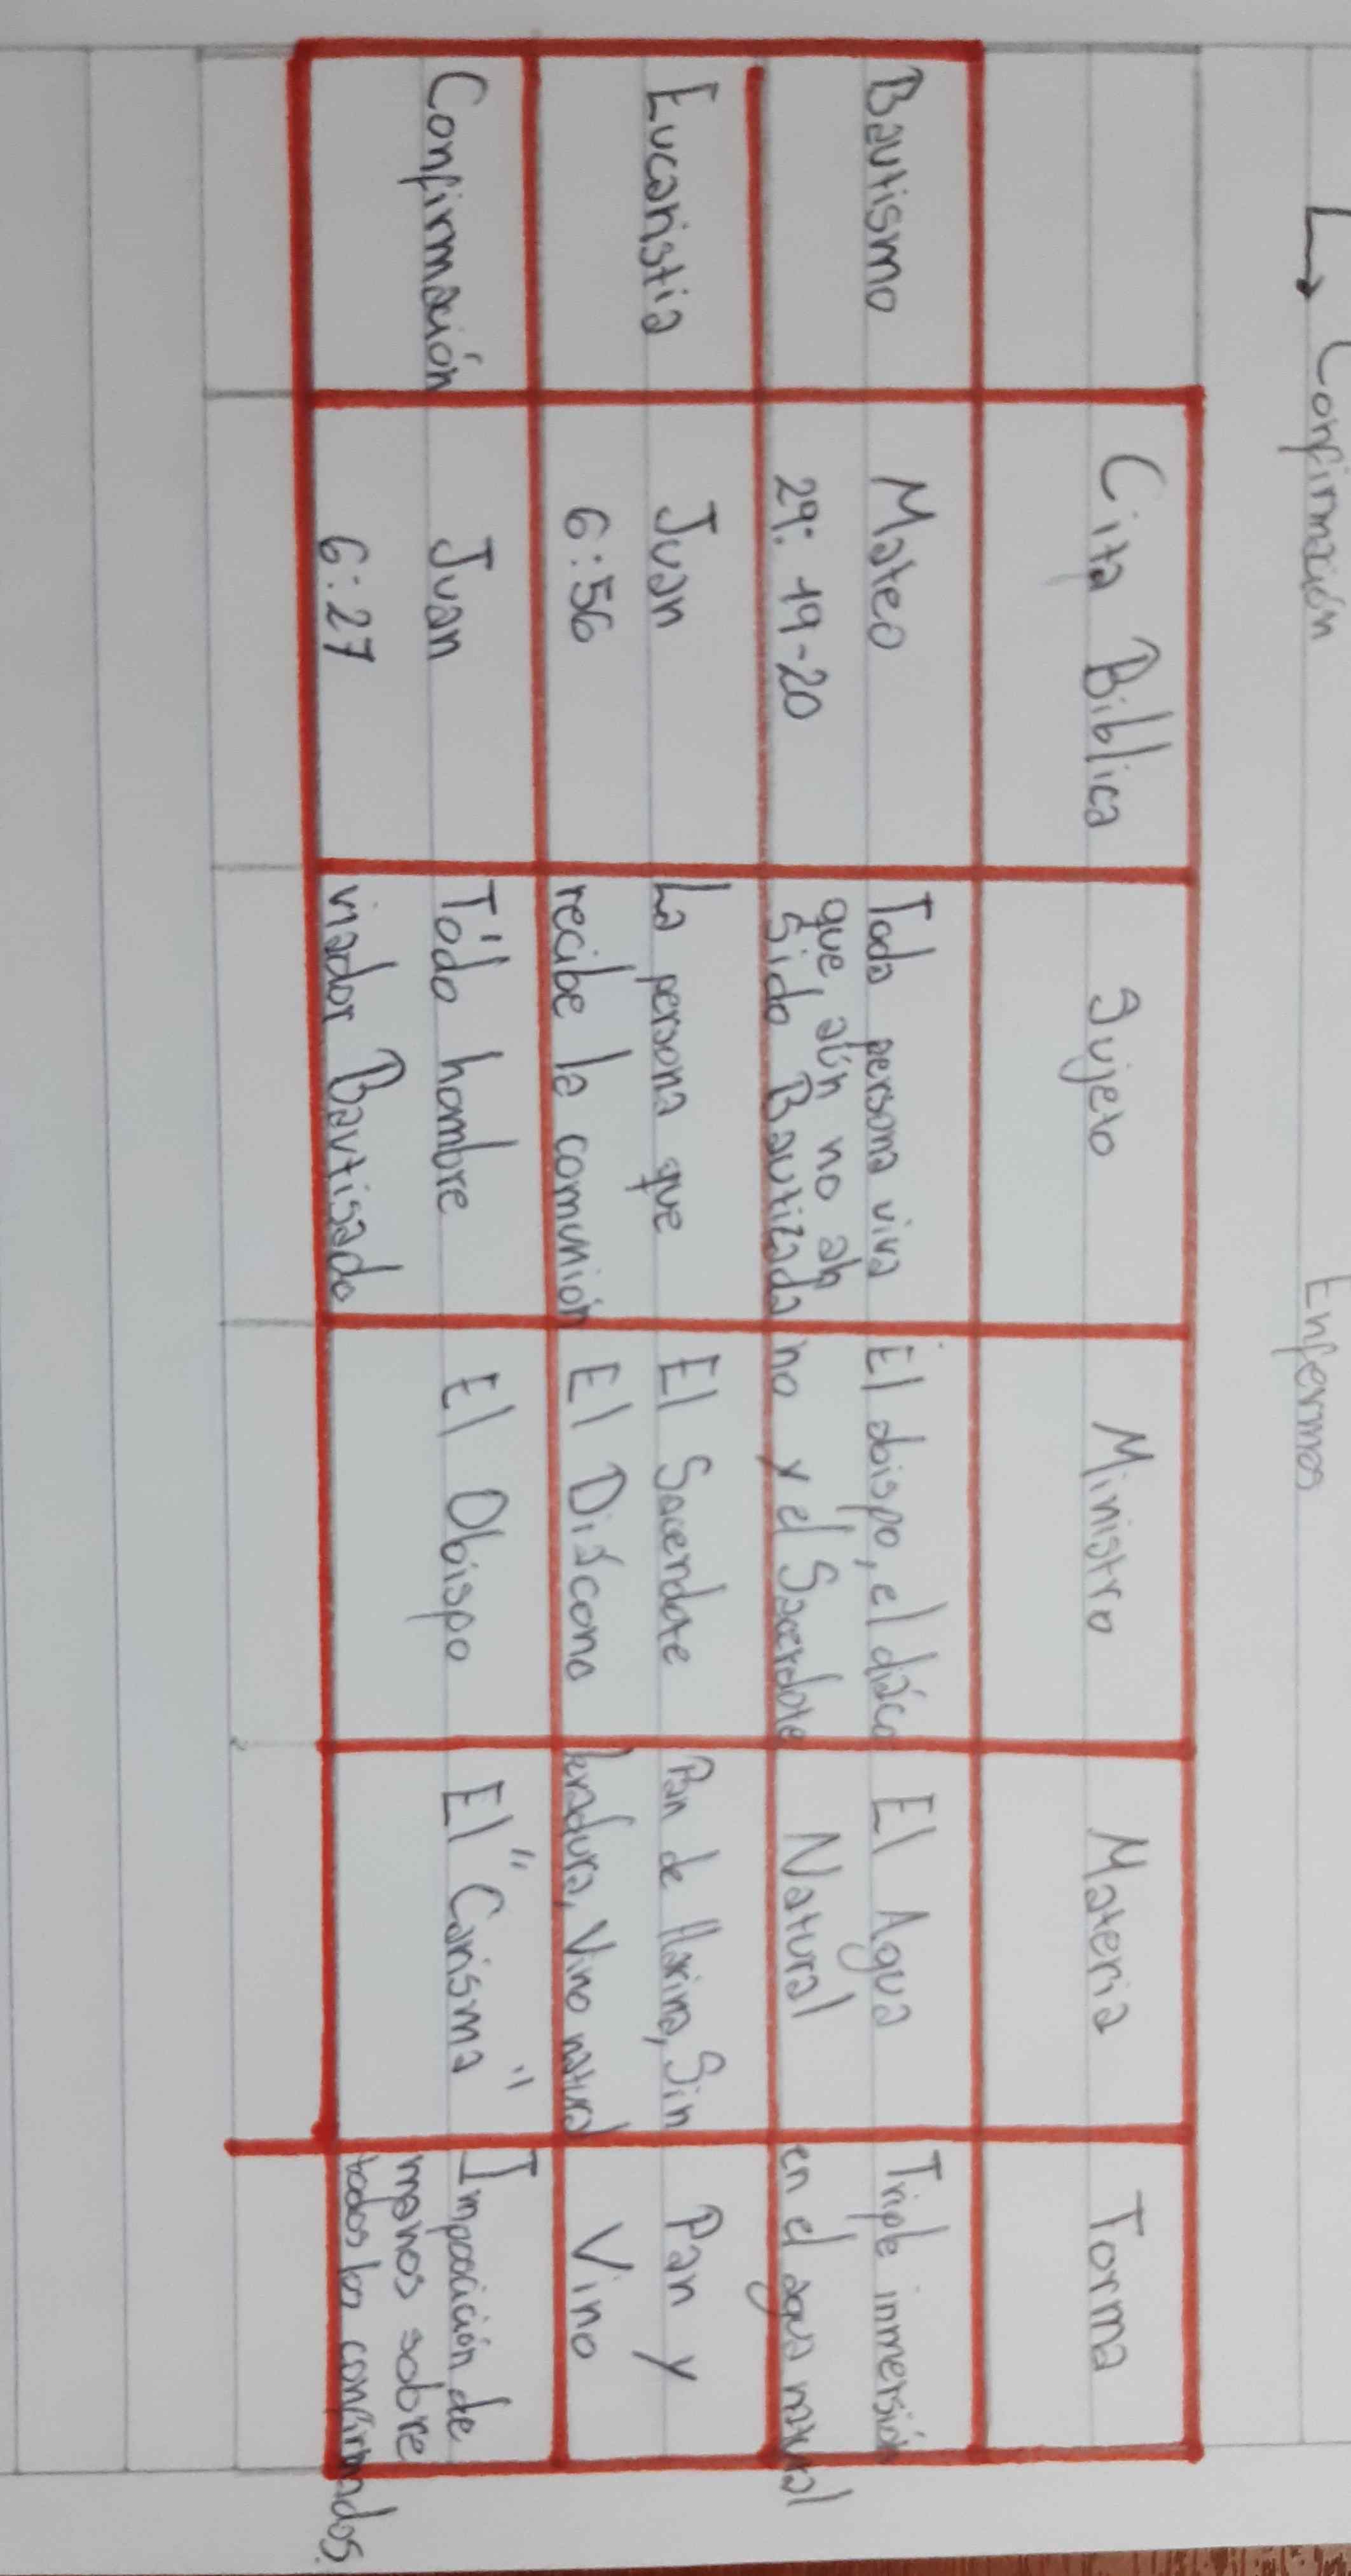 ↳ Confirmación Enfermos
Cita Biblica Sujeto Ministro Materia Forma
Bautismo
Mateo
29: 19-20
Toda persona viva
que aún no ah
Sido Bautizada
El obispo, el diáco
no y el Sacerdote
El Agua
Natural
Triple inmersión
en el agua natural
Eucaristia
Juan
6:56
La persona que
recibe la comunión
El Sacerdote
El Diácono
Pan de Harina, Sin
levadura, Vino natural
Pan y
Vino
Confirmación
Juan
6:27
Tódo hombre
viador Bautisado
El Obispo
El "Carisma"
Imposición de
manos sobre
todos los confirmados.